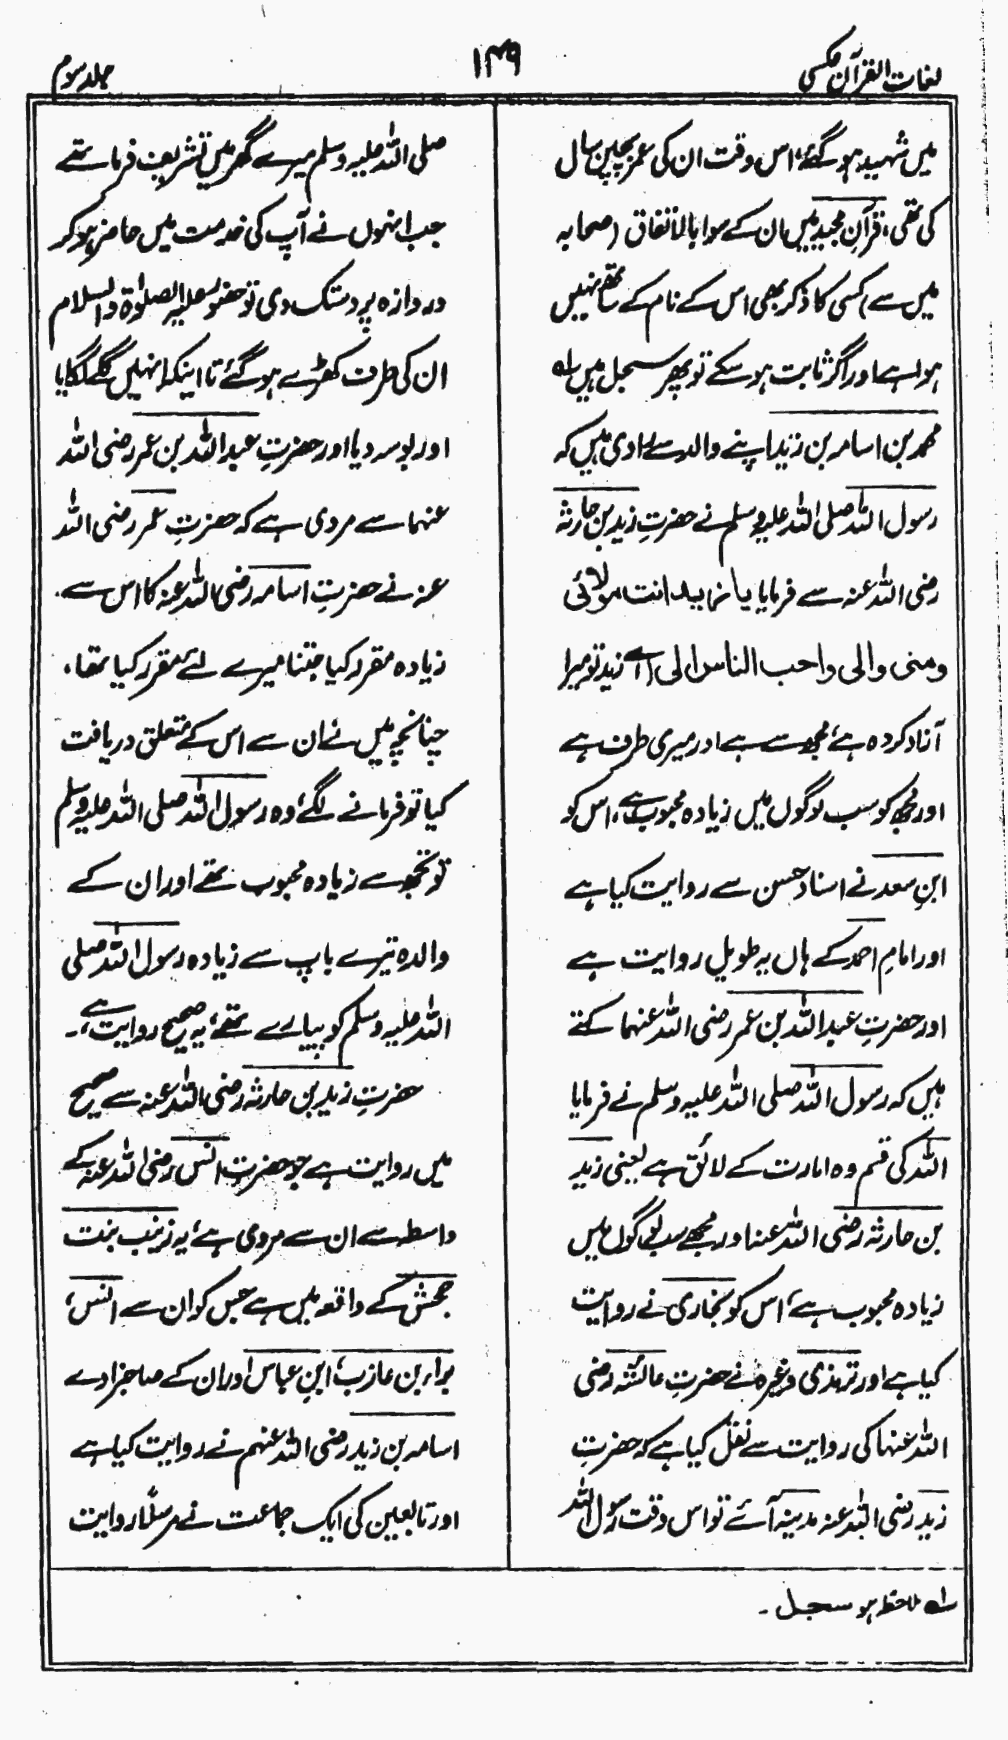 لغات القرآن عکسی
۱۴۹
جلد سوم
میں شہید ہو گئے، اس وقت ان کی عمر پچپن سال
کی تھی، قرآنِ مجید میں ان کے سوا بالاتفاق (صحابہ
میں سے) کسی کا ذکر بھی اس کے نام کے ساتھ نہیں
ہوا ہے اور اگر ثابت ہو سکے تو پھر سجل ہیں لہ
محمد بن اسامہ بن زید اپنے والد سے راوی ہیں کہ
رسول اللہ صلی اللہ علیہ وسلم نے حضرتِ زید بن حارثہ
رضی اللہ عنہ سے فرمایا یا زید انت مولائی
ومنی والی واحب الناس الی (اے زید تو میرا
آزاد کردہ ہے، مجھ سے ہے اور میری طرف ہے
اور مجھ کو سب لوگوں میں زیادہ محبوب ہے، اس کو
ابنِ سعد نے اسناد حسن سے روایت کیا ہے
اور امامِ احمد کے ہاں یہ طویل روایت ہے
اور حضرتِ عبداللہ بن عمر رضی اللہ عنہما کہتے
ہیں کہ رسول اللہ صلی اللہ علیہ وسلم نے فرمایا
اللہ کی قسم وہ امارت کے لائق ہے یعنی زید
بن حارثہ رضی اللہ عنہ اور مجھے سب لوگوں میں
زیادہ محبوب ہے، اس کو بخاری نے روایت
کیا ہے اور ترمذی وغیرہ نے حضرتِ عائشہ رضی
اللہ عنہا کی روایت سے نقل کیا ہے کہ حضرتِ
زید رضی اللہ عنہ مدینہ آئے تو اس وقت رسول اللہ
صلی اللہ علیہ وسلم میرے گھر میں تشریف فرما تھے
جب انہوں نے آپ کی خدمت میں حاضر ہو کر
دروازہ پر دستک دی تو حضور علیہ الصلوٰۃ والسلام
ان کی طرف کھڑے ہو گئے تا اینکہ انہیں گلے لگایا
اور بوسہ دیا اور حضرتِ عبداللہ بن عمر رضی اللہ
عنہما سے مروی ہے کہ حضرتِ عمر رضی اللہ
عنہ نے حضرتِ اسامہ رضی اللہ عنہ کا اس سے
زیادہ مقرر کیا جتنا میرے لئے مقرر کیا تھا،
چنانچہ میں نے ان سے اس کے متعلق دریافت
کیا تو فرمانے لگے، وہ رسول اللہ صلی اللہ علیہ وسلم
تو تجھ سے زیادہ محبوب تھے اور ان کے
والد تیرے باپ سے زیادہ رسول اللہ صلی
اللہ علیہ وسلم کو پیارے تھے، یہ صحیح روایت ہے۔
حضرتِ زید بن حارثہ رضی اللہ عنہ سے صحیح
میں روایت ہے جو حضرتِ انس رضی اللہ عنہ کے
واسطہ سے ان سے مروی ہے، یہ زینب بنت
جحش کے واقعہ میں ہے جس کو ان سے انس،
براء بن عازب، ابنِ عباس اور ان کے صاحبزادے
اسامہ بن زید رضی اللہ عنہم نے روایت کیا ہے
اور تابعین کی ایک جماعت نے مرسلاً روایت
لہ ملاحظہ ہو سجل۔